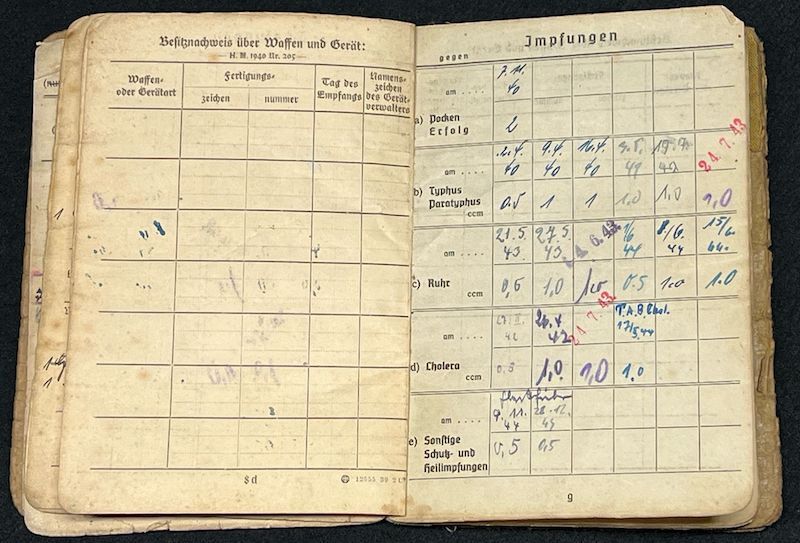 Besitznachweis über Waffen und Gerät:
H. M. 1940 Nr. 205
Waffen-
oder Gerätart
Fertigungs-
zeichen
nummer
Tag des
Empfangs
Namens-
zeichen
des Gerät-
verwalters
8d
Impfungen
gegen
7. 11.
am . . . . 40
a) Pocken
Erfolg 2
2.4. 9.4. 16.4. 24.7.43
am . . . . 40 40 40
b) Typhus
Paratyphus 0.5 1 1 1.0 1,0 1,0
ccm
21.5. 27.5. 24.6.43 1/6 8./6. 15/6.
am . . . . 43 43. 44 44 44.
c) Ruhr 0,5 1,0 1.0 0.5 1.0 1.0
ccm
26.4 24.7.43 T.A.B. Chol.
am . . . . 42 42 17/5.44
d) Cholera 0,5 1,0. 1,0 1.0
ccm
Fleckfieber
9. 11. 28.12.
am . . . . 44
e) Sonstige 0,5 0,5
Schutz- und
Heilimpfungen
9